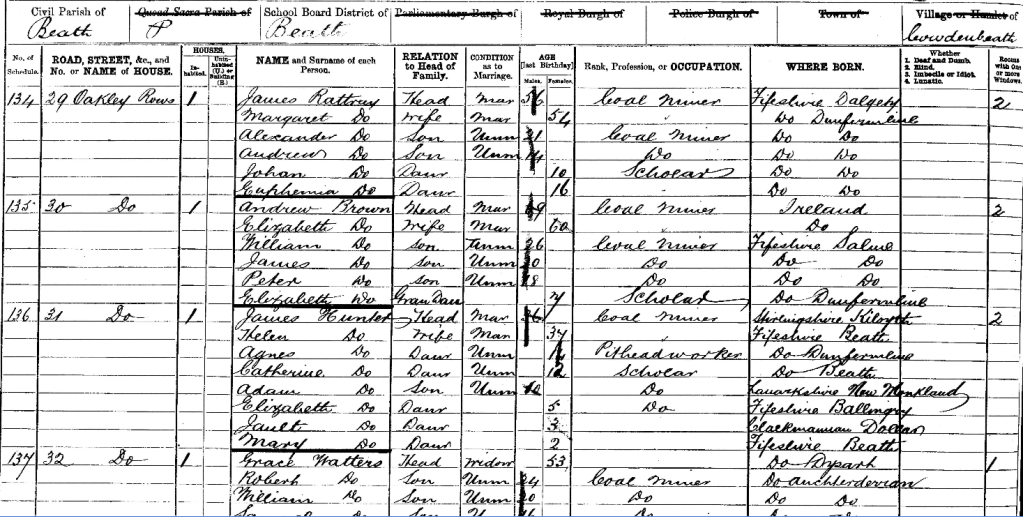 Civil Parish of Quoad Sacra Parish of School Board District of Parliamentary Burgh of Royal Burgh of Police Burgh of Town of Village or Hamlet of
Beath P Beath Cowdenbeath
No. of Schedule. ROAD, STREET, &c., and No. or NAME of HOUSE. HOUSES. Inhabited. Uninhabited (U.) or Building (B.) NAME and Surname of each Person. RELATION to Head of Family. CONDITION as to Marriage. AGE [last Birthday] Males. Females. Rank, Profession, or OCCUPATION. WHERE BORN. Whether 1. Deaf and Dumb. 2. Blind. 3. Imbecile or Idiot. 4. Lunatic. Rooms with One or more Windows.
134 29 Oakley Rows 1 James Rattray Head Mar 56 Coal Miner Fifeshire Dalgety 2
Margaret Do Wife Mar 54 Do Dunfermline
Alexander Do Son Unm 21 Coal Miner Do Do
Andrew Do Son Unm 14 Do Do Do
Johan Do Daur 10 Scholar Do Do
Euphemia Do Daur 16 Do Do
135 30 Do 1 Andrew Brown Head Mar Coal Miner Ireland 2
Elizabeth Do Wife Mar 60 Do
William Do Son Unm 26 Coal Miner Fifeshire Saline
James Do Son Unm 20 Do Do Do
Peter Do Son Unm 18 Do Do Do
Elizabeth Do Gran Daur 7 Scholar Do Dunfermline
136 31 Do 1 James Hunter Head Mar 36 Coal Miner Stirlingshire Kilsyth 2
Helen Do Wife Mar 37 Fifeshire Beath
Agnes Do Daur Unm Pithead worker Do Dunfermline
Catherine Do Daur Unm 12 Scholar Do Beath
Adam Do Son Unm 10 Do Lanarkshire New Monkland
Elizabeth Do Daur 5 Do Fifeshire Ballingry
Do Daur 3 Clackmannan Dollar
Mary Do Daur 2 Fifeshire Beath
137 32 Do 1 Grace Watters Head Widow 53 Do Dysart 1
Robert Do Son Unm 24 Coal Miner Do Auchterderran
William Do Son Unm 20 Do Do Do